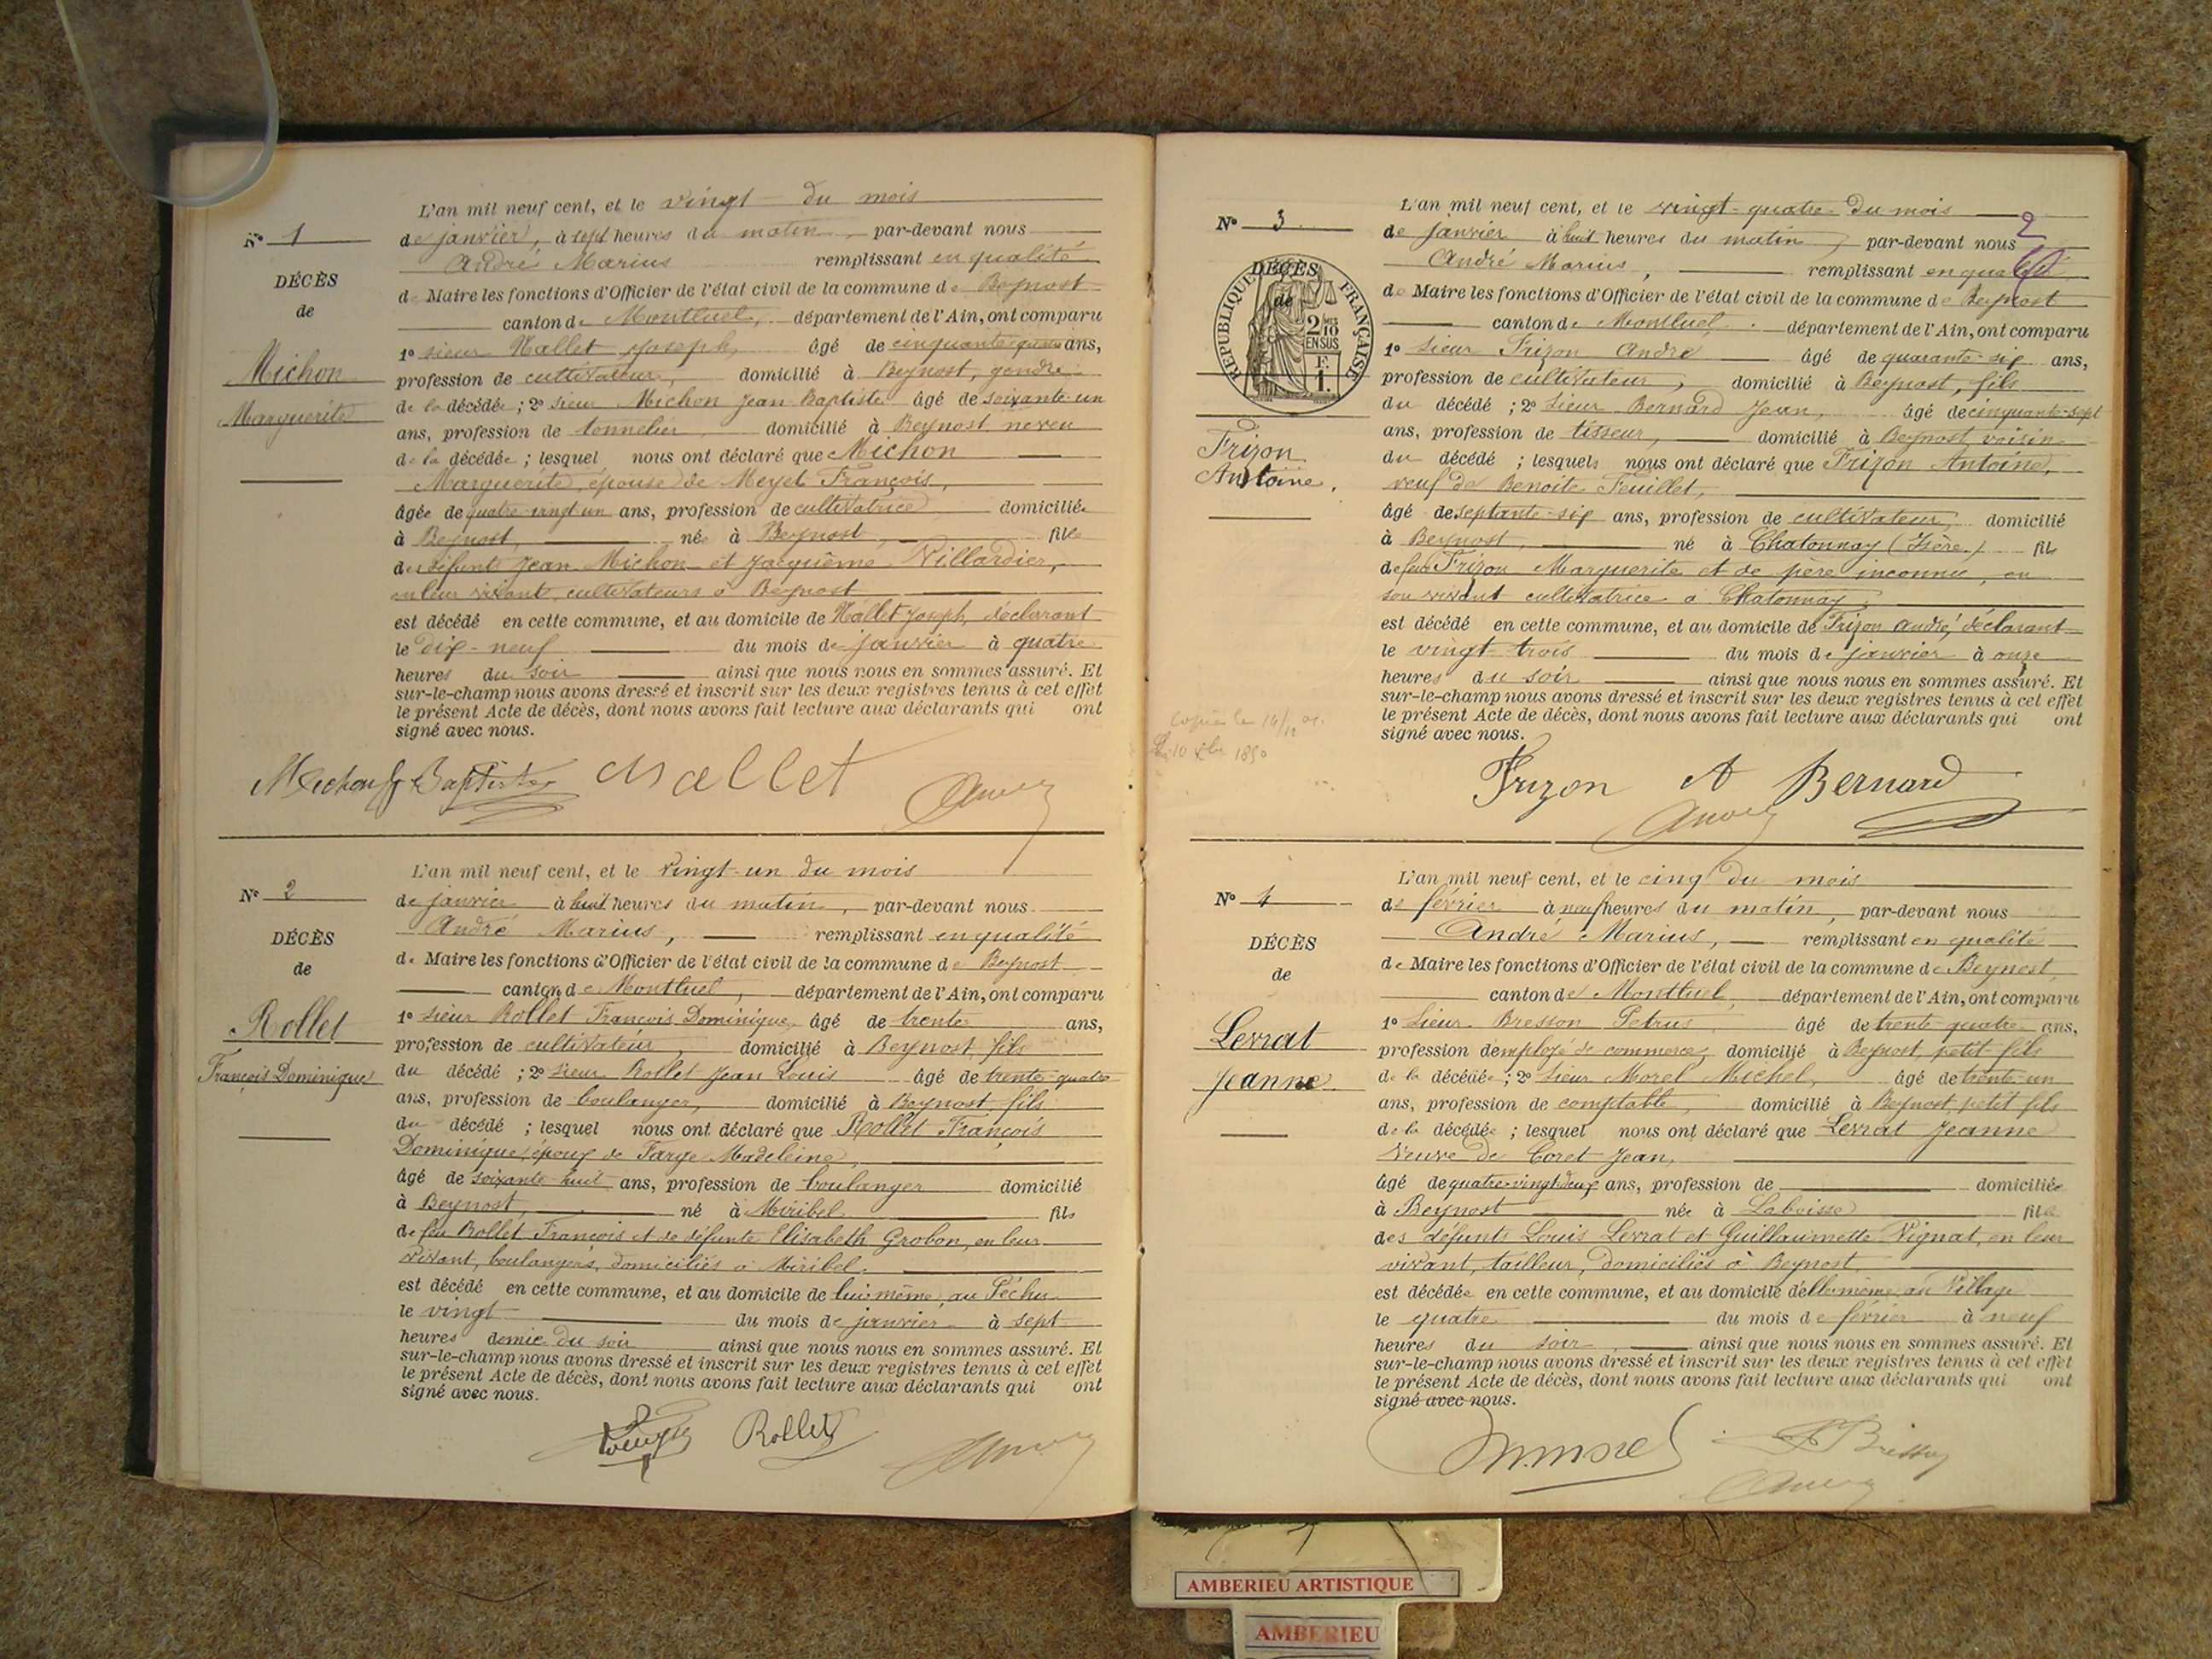 L'an mil neuf cent, et le vingt du mois
N° 1
de janvier, à sept heures du matin, par-devant nous
André Marius remplissant en qualité
DÉCÈS
de Maire les fonctions d'Officier de l'état civil de la commune de Beynost
de
canton de Montluel, département de l'Ain, ont comparu
1° sieur Mallet Joseph, âgé de cinquante ans,
Michon
profession de cultivateur, domicilié à Beynost, gendre
de la décédée ; 2° sieur Michon Jean Baptiste âgé de soixante-un
Marguerite
ans, profession de tonnelier domicilié à Beynost neveu
de la décédée ; lesquel nous ont déclaré que Michon
Marguerite, épouse de Meyet François,
âgée de quatre-vingt-un ans, profession de cultivatrice domiciliée
à Beynost, née à Beynost, fille
des défunts Jean Michon et Jacquême Villardier,
en leur vivant, cultivateurs à Beynost
est décédé en cette commune, et au domicile de Mallet Joseph, déclarant
le dix-neuf du mois de janvier à quatre
heures du soir ainsi que nous nous en sommes assuré. Et
sur-le-champ nous avons dressé et inscrit sur les deux registres tenus à cet effet
le présent Acte de décès, dont nous avons fait lecture aux déclarants qui ont
signé avec nous.
Michon J Baptiste Mallet
L'an mil neuf cent, et le vingt-un du mois
N° 2
de janvier à huit heures du matin, par-devant nous
André Marius, remplissant en qualité
DÉCÈS
de Maire les fonctions d'Officier de l'état civil de la commune de Beynost
de
canton de Montluel, département de l'Ain, ont comparu
Rollet
1° sieur Rollet François Dominique, âgé de trente ans,
profession de cultivateur, domicilié à Beynost, fils
François Dominique
du décédé ; 2° sieur Rollet Jean Louis âgé de trente-quatre
ans, profession de boulanger, domicilié à Beynost fils
du décédé ; lesquel nous ont déclaré que Rollet François
Dominique, époux de Farge Madeleine,
âgé de soixante-huit ans, profession de boulanger domicilié
à Beynost, né à Miribel fils
de feu Rollet François et de défunte Elisabeth Grobon, en leur
vivant, boulangers, domiciliés à Miribel.
est décédé en cette commune, et au domicile de lui-même, au Péchu
le vingt du mois de janvier à sept
heures demie du soir ainsi que nous nous en sommes assuré. Et
sur-le-champ nous avons dressé et inscrit sur les deux registres tenus à cet effet
le présent Acte de décès, dont nous avons fait lecture aux déclarants qui ont
signé avec nous.
Rollet
L'an mil neuf cent, et le vingt-quatre du mois
N° 3
2
de janvier à huit heures du matin, par-devant nous
André Marius, remplissant en qualité
DÉCÈS
de
RÉPUBLIQUE FRANÇAISE
2/10 EN SUS
F. 1.
de Maire les fonctions d'Officier de l'état civil de la commune de Beynost
canton de Montluel. département de l'Ain, ont comparu
1° Sieur Frizon André âgé de quarante-six ans,
profession de cultivateur, domicilié à Beynost, fils
du décédé ; 2° Sieur Bernard Jean, âgé de cinquante-sept
ans, profession de tisseur, domicilié à Beynost, voisin
Frizon
du décédé ; lesquels nous ont déclaré que Frizon Antoine,
Antoine,
veuf de Benoite Feuillet,
âgé de septante-six ans, profession de cultivateur, domicilié
à Beynost, né à Chatonnay (Isère.) fils
de feue Frizon Marguerite et de père inconnu, en
son vivant cultivatrice à Chatonnay,
est décédé en cette commune, et au domicile de Frizon André, déclarant
le vingt-trois du mois de janvier à onze
heures du soir ainsi que nous nous en sommes assuré. Et
sur-le-champ nous avons dressé et inscrit sur les deux registres tenus à cet effet
le présent Acte de décès, dont nous avons fait lecture aux déclarants qui ont
signé avec nous.
Frizon A Bernard
L'an mil neuf cent, et le cinq du mois
N° 4
de février à neuf heures du matin, par-devant nous
André Marius, remplissant en qualité
DÉCÈS
de Maire les fonctions d'Officier de l'état civil de la commune de Beynost,
de
canton de Montluel, département de l'Ain, ont comparu
1° Sieur Bresson Petrus âgé de trente-quatre ans,
Levrat
profession d'employé de commerce, domicilié à Beynost, petit fils
Jeanne
de la décédée ; 2° Sieur Morel Michel, âgé de trente-un
ans, profession de comptable, domicilié à Beynost, petit fils
de la décédée ; lesquel nous ont déclaré que Levrat Jeanne
Veuve de Coret Jean,
âgé de quatre-vingt-deux ans, profession de domiciliée
à Beynost née à Laboisse fille
des défunts Louis Levrat et Guillaumette Vignat, en leur
vivant, tailleur, domiciliés à Beynost,
est décédée en cette commune, et au domicile d'elle-même, au Village
le quatre du mois de février à neuf
heures du soir, ainsi que nous nous en sommes assuré. Et
sur-le-champ nous avons dressé et inscrit sur les deux registres tenus à cet effet
le présent Acte de décès, dont nous avons fait lecture aux déclarants qui ont
signé avec nous.
AMBERIEU ARTISTIQUE
AMBERIEU